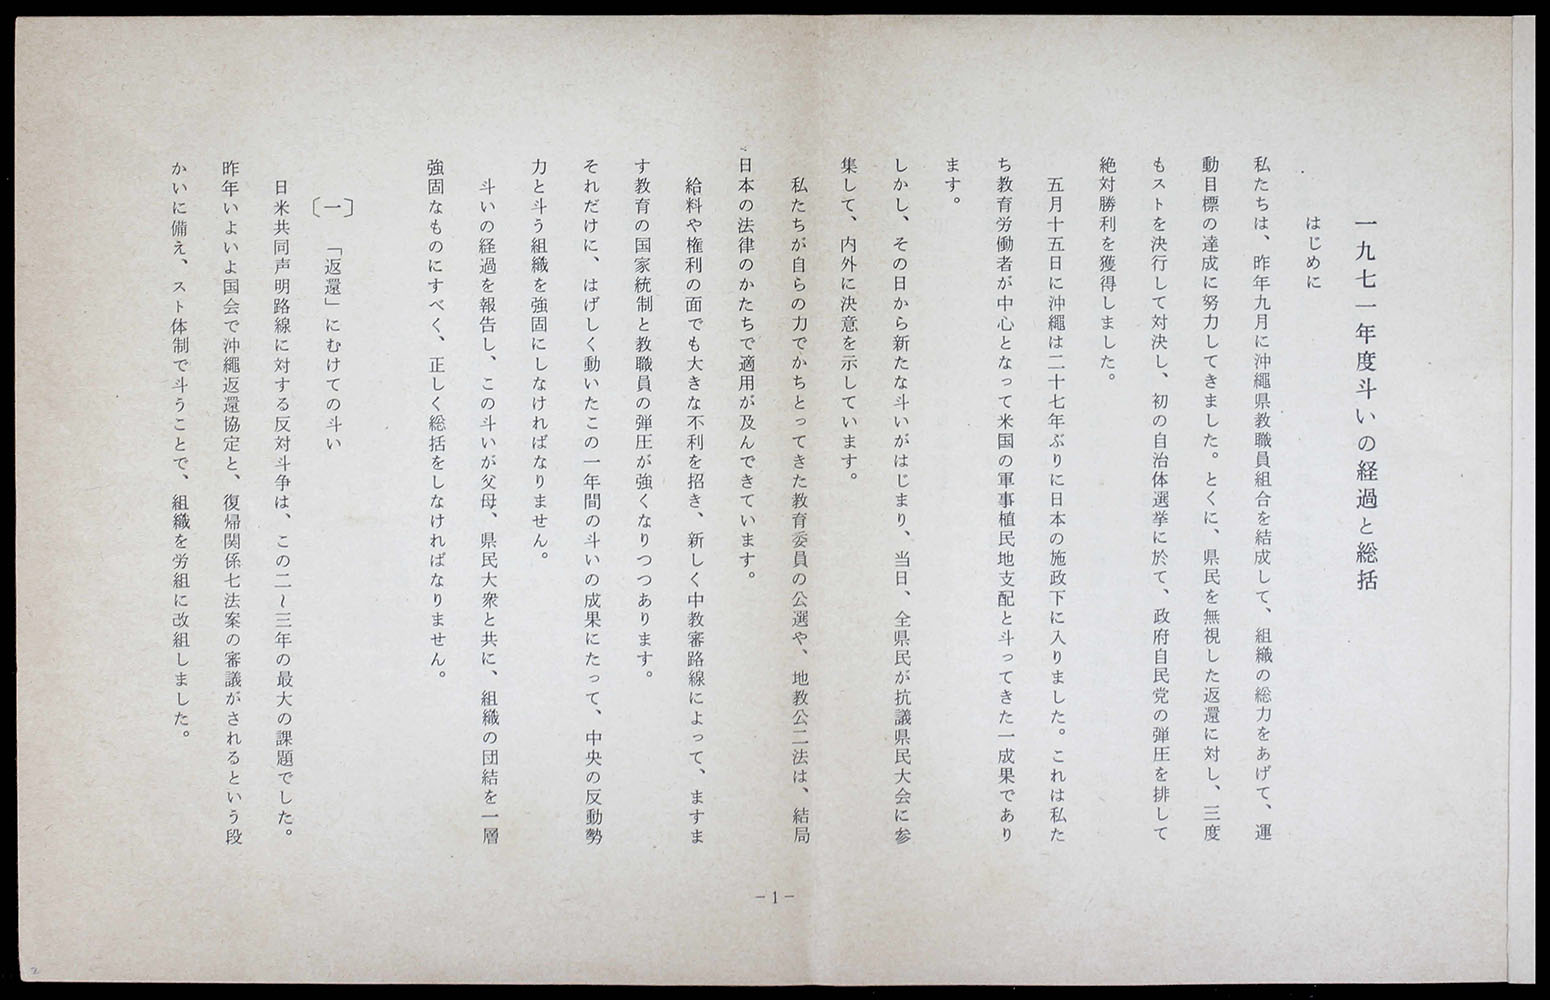 一九七一年度斗いの経過と総括
はじめに
私たちは、昨年九月に沖縄県教職員組合を結成して、組織の総力をあげて、運
動目標の達成に努力してきました。とくに、県民を無視した返還に対し、三度
もストを決行して対決し、初の自治体選挙に於て、政府自民党の弾圧を排して
絶対勝利を獲得しました。
五月十五日に沖縄は二十七年ぶりに日本の施政下に入りました。これは私た
ち教育労働者が中心となって米国の軍事植民地支配と斗ってきた一成果であり
ます。
しかし、その日から新たな斗いがはじまり、当日、全県民が抗議県民大会に参
集して、内外に決意を示しています。
私たちが自らの力でかちとってきた教育委員の公選や、地教公二法は、結局
日本の法律のかたちで適用が及んできています。
給料や権利の面でも大きな不利を招き、新しく中教審路線によって、ますま
す教育の国家統制と教職員の弾圧が強くなりつつあります。
それだけに、はげしく動いたこの一年間の斗いの成果にたって、中央の反動勢
力と斗う組織を強固にしなければなりません。
斗いの経過を報告し、この斗いが父母、県民大衆と共に、組織の団結を一層
強固なものにすべく、正しく総括をしなければなりません。
〔一〕 「返還」にむけての斗い
日米共同声明路線に対する反対斗争は、この二〜三年の最大の課題でした。
昨年いよいよ国会で沖縄返還協定と、復帰関係七法案の審議がされるという段
かいに備え、スト体制で斗うことで、組織を労組に改組しました。
－1－
2